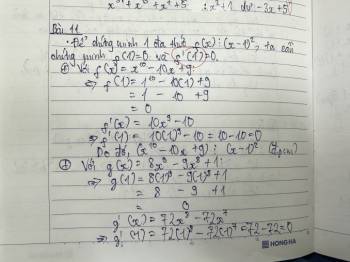 x³¹ + x¹³ + x⁹ + 5 : x² + 1 dư: -3x + 5
Bài 11
Để chứng minh 1 đa thức f(x) ⋮ (x - 1)², ta cần
chứng minh f(1) = 0 và f'(1) = 0.
⊕ Với f(x) = x¹⁰ - 10x + 9:
⇒ f(1) = 1¹⁰ - 10(1) + 9
= 1 - 10 + 9
= 0
f'(x) = 10x⁹ - 10
⇒ f'(1) = 10(1)⁹ - 10 = 10 - 10 = 0
Do đó, (x¹⁰ - 10x + 9) ⋮ (x - 1)² (đpcm)
⊕ Với g(x) = 8x⁹ - 9x⁸ + 1:
⇒ g(1) = 8(1)⁹ - 9(1)⁸ + 1
= 8 - 9 + 1
= 0
g'(x) = 72x⁸ - 72x⁷
⇒ g'(1) = 72(1)⁸ - 72(1)⁷ = 72 - 72 = 0
HONG HA